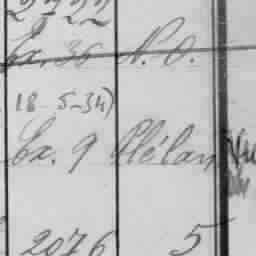 2722
Ex. 36 N.O.
18-5-34)
Ex. 9 Plélan
2076 5